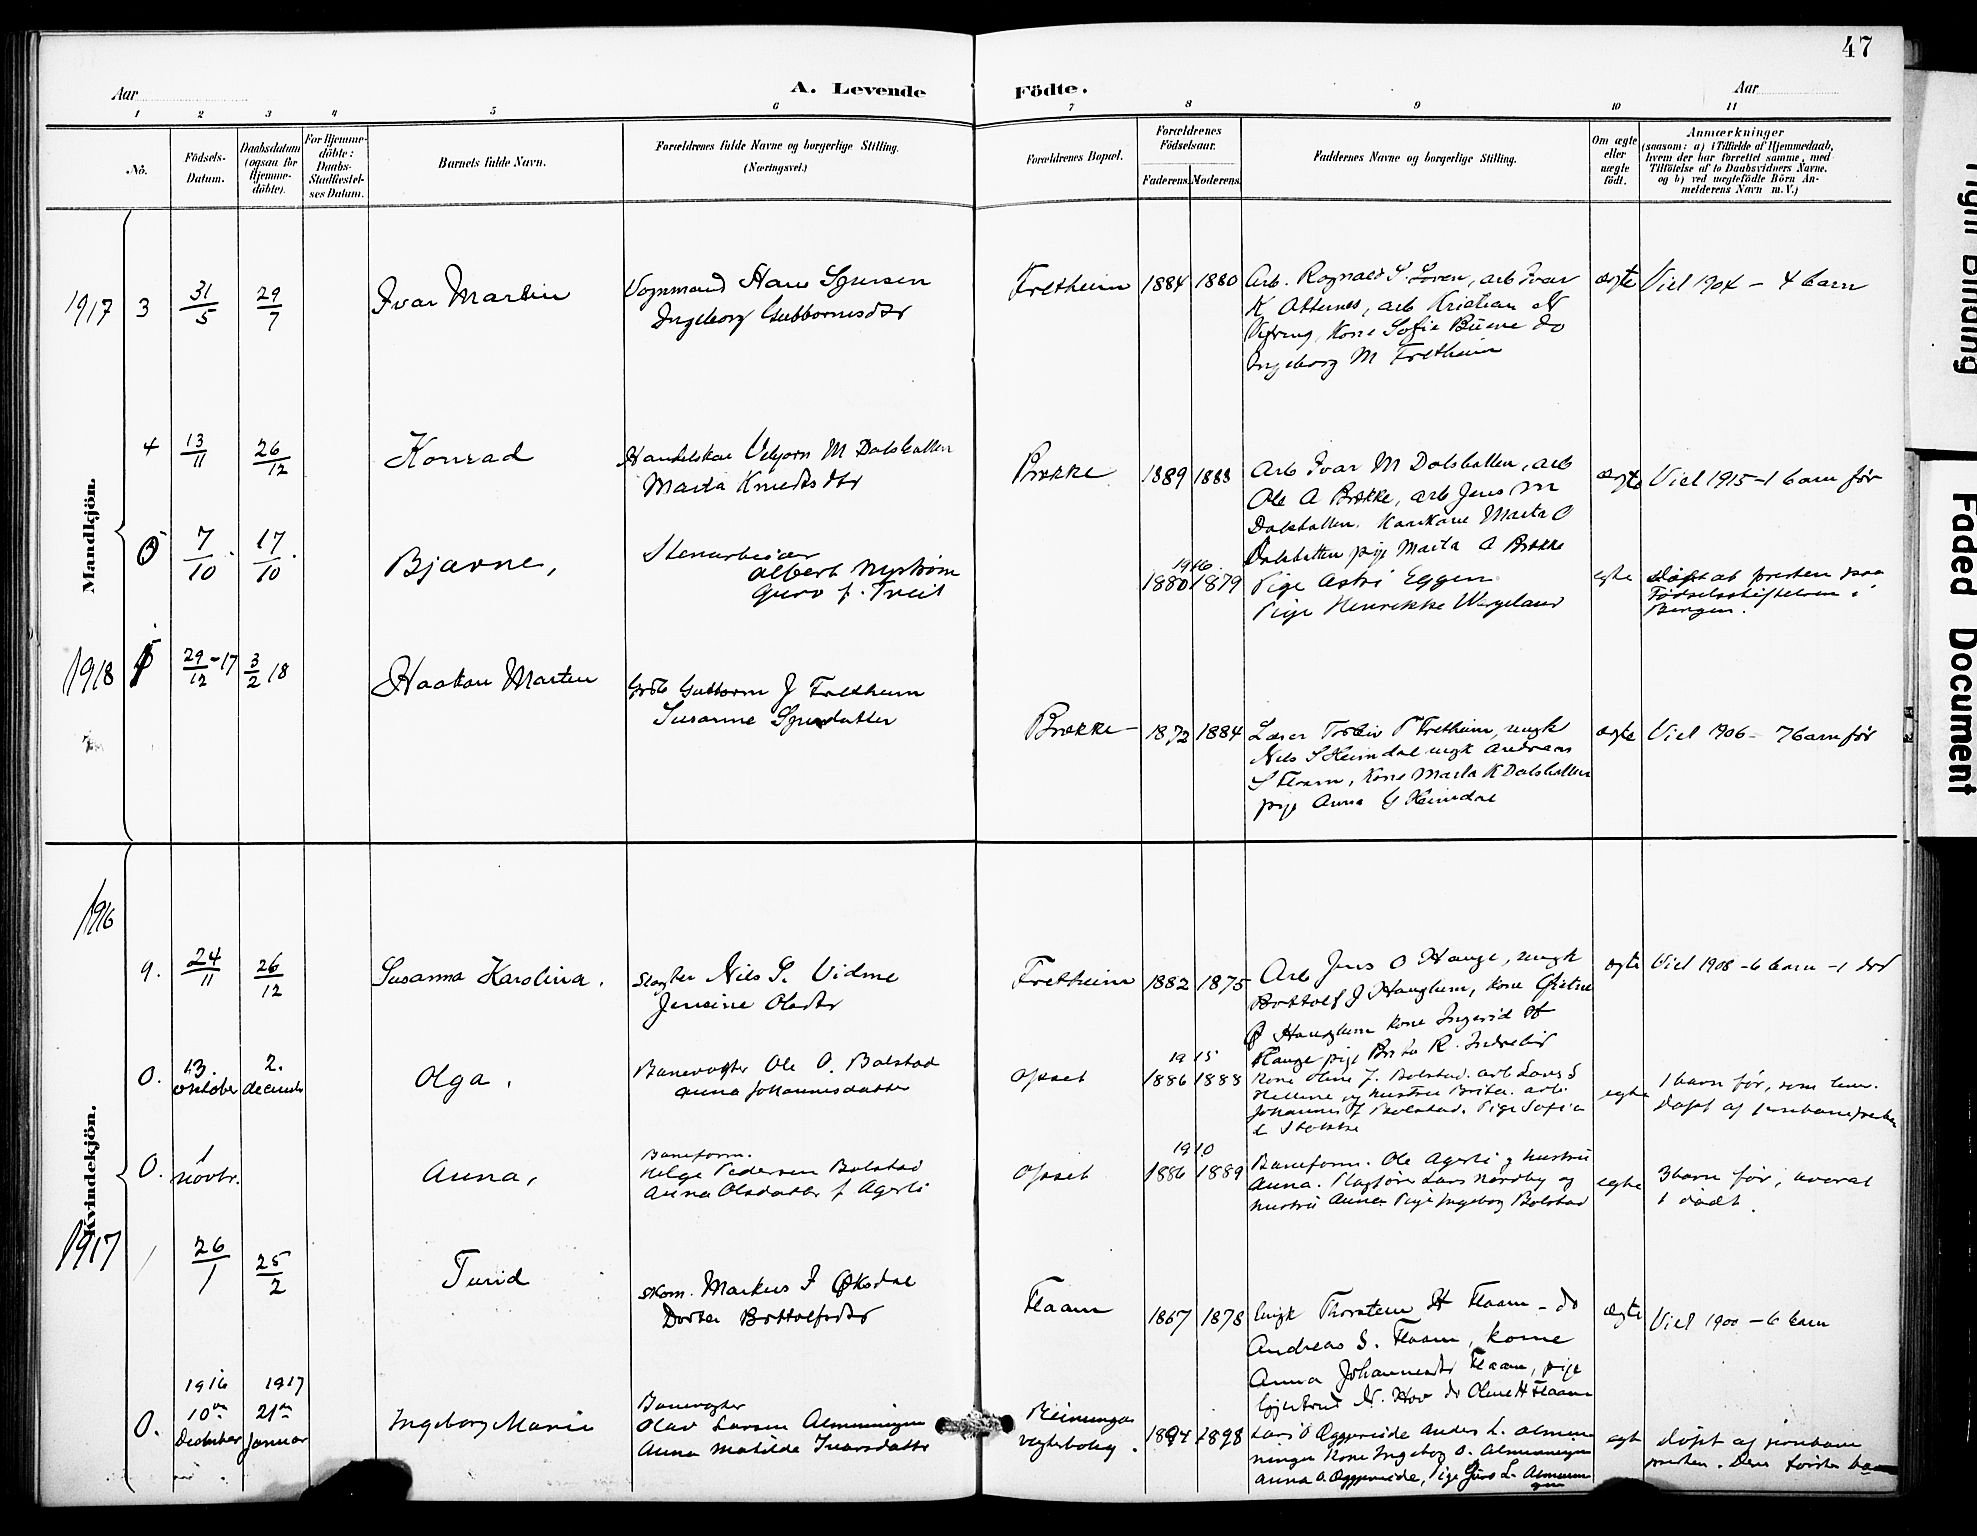 47
Aar
A. Levende Födte.
Aar
1 2 3 4 5 6 7 8 9 10 11
No.
Födsels-
Datum.
Daabsdatum
(ogsaa for
Hjemme-
döbte).
For Hjemme-
döbte:
Daabs-
Stadfæstel-
ses Datum.
Barnets fulde Navn.
Forældrenes fulde Navne og borgerlige Stilling.
(Næringsvei.)
Forældrenes Bopæl.
Forældrenes
Födselsaar.
Faderens.
Moderens.
Faddernes Navne og borgerlige Stilling.
Om ægte
eller
uægte
födt.
Anmærkninger
(saasom: a) i Tilfælde af Hjemmedaab,
hvem der har forrettet samme, med
Tilföielse af to Daabsvidners Navne,
og b) ved uægtefödte Börn An-
melderens Navn m. V.)
Mandkjön.
1917 3 31/5 29/7
Ivar Martin
Vognmand Hans Sjursen
Ingeborg Guttormsdtr
Fretheim 1884 1880
Arb. Ragnald S. Loven, arb Ivar
K Otternes, arb Kristian N
Vifring, Kone Sofie Buene do
Ingeborg M Fretheim
ægte
Viet 1904 - 4 barn
4 13/11 26/12
Konrad
Handelskar Vebjørn M Dalsbotten
Marta Knudsdtr
Brekke 1889 1888
Arb Ivar M Dalsbotten, arb
Ole A Brekke, arb Jens M
Dalsbotten, Marta O
Dalsbotten pige Marta A Brekke
ægte
Viet 1915 - 1 barn før
5 7/10 17/10
Bjarne,
Stenarbeider
Albert Nystrøm
Guro f. Tveit
1916.
1880 1879
Pige Astri Eggen
Pige Henrikke Wergeland
egte
Døpt at presten paa
Fødselsstiftelsen i
Bergen.
1918 29/12 -17 3/2 18
Haakon Martin
Guttorm J Fretheim
Susanne Sjursdatter
Brekke 1872 1884
Lærer Torleiv P Fretheim, ungk
Nils S Heimdal ungk Andreas
S Flaam, Kone Marta K Dalsbotten
pige Anna G Heimdal
ægte
Viet 1906 - 7 barn før
Kvindekjön.
1916
9. 24/11 26/12
Susanna Karolina.
Slagter Nils S. Vidme
Jensine Olsdtr
Fretheim 1882 1875
Arb Jens O Hauge, ungk
Bottolf J Haugheim, Kone Kristine
Ø Haugheim kone Ingerid H
Hauge pige Brita R. Indrelid
ægte
Viet 1908 - 6 barn - 1 død
0. 13. oktober 2. decemb
Olga.
Banevogter Ole O. Bolstad
Anna Johannesdatter
Opset
1915
1886 1888
Kone Oline J. Bolstad. arb Lars S
Hellene og hustru Brita. arb.
Johannes J Bolstad. Pige Sofie
egte
1 barn før, som lever.
Døpt af
0. 1 novbr.
Anna,
Baneform.
Helge Pedersen Bolstad
Anna Olsdatter f Agerli
Opset
1910
1886 1889
Baneform. Ole Agerli og hustru
Anna. Lars Nordby og
hustru Anna. Pige Ingeborg Bolstad
egte
3 barn før, hvorav
1 dødt.
1917 1 26/1 25/2
Turid
Skom. Markus I Øksdal
Dorter Bottolfsdtr
Flaam 1867 1878
Ungk Thorstein H Flaam - do
Andreas S. Flaam, kone
Anna Johannesdtr Flaam, pige
Gjertrud N. Hov do Oline H Flaam
ægte
Viet 1900 - 6 barn
1916 1917
0. 10de December 21de Januar
Ingeborg Marie
Banevogter
Olav Larsen Almenningen
Anna Matilde Ivarsdatter
Reinunga
vogterbolig.
1894 1898
Lars O Oppereide Anders L. Almen
ningen Kone Ingeborg O. Almenningen
Anna O. Oppereide, Pige Guro L. Almenn
gen
egte
Døpt af jernbane
presten. Deres første ba
Tight Binding
Faded Document